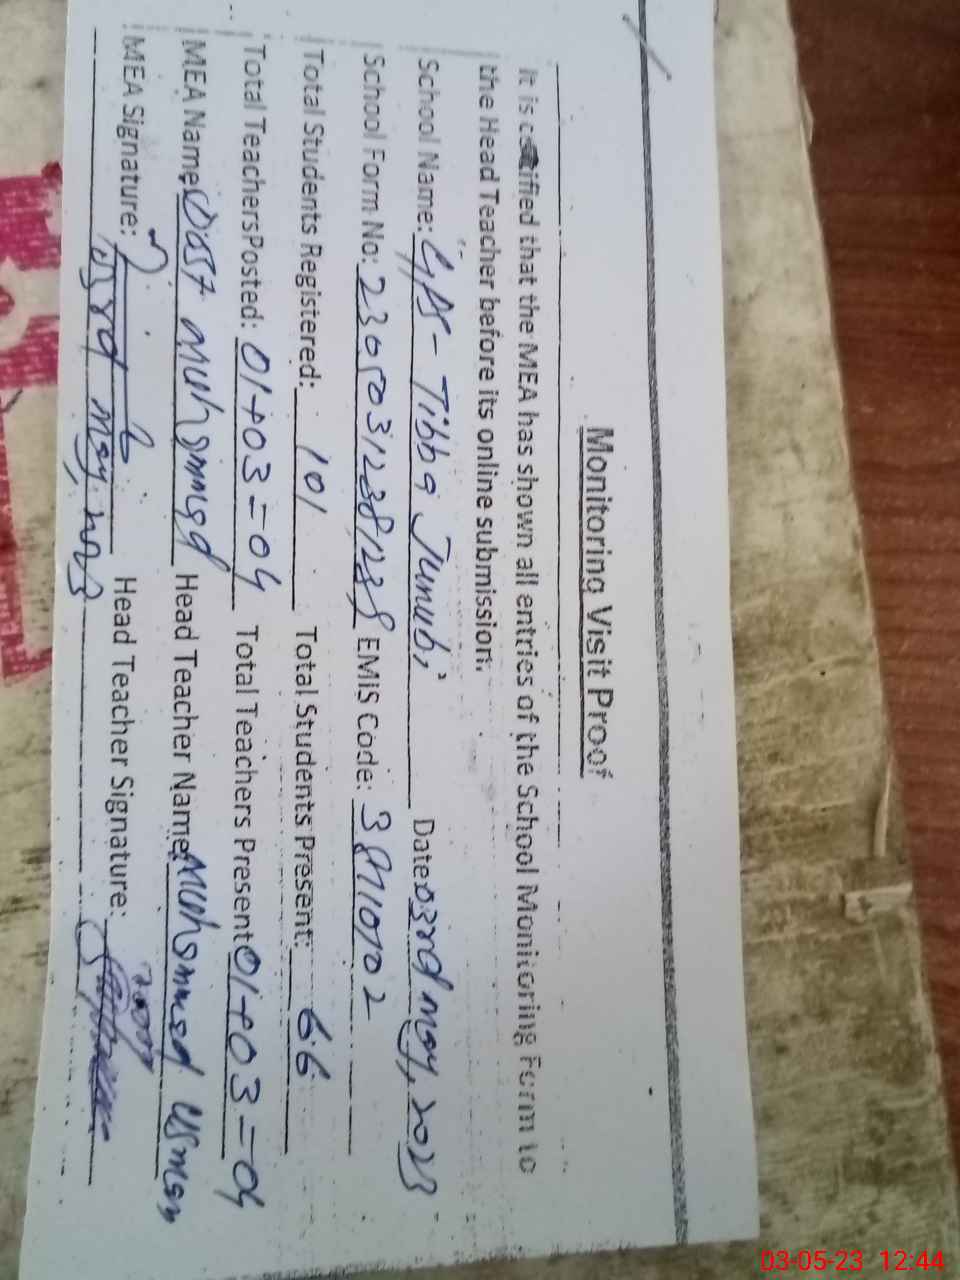 Monitoring Visit Proof
It is certified that the MEA has shown all entries of the School Monitoring Form to
the Head Teacher before its online submission.
School Name: GPS- Tibba Junubi Date: 03rd May, 2023
School Form No: EMIS Code:
Total Students Registered: 101 Total Students Present: 66
Total Teachers Posted: 01+03=04 Total Teachers Present 01+03=04
MEA Name: Dost Muhammad Head Teacher Name: Muhammad Usman
MEA Signature: Head Teacher Signature:
03rd May, 2023
03-05-23 12:44